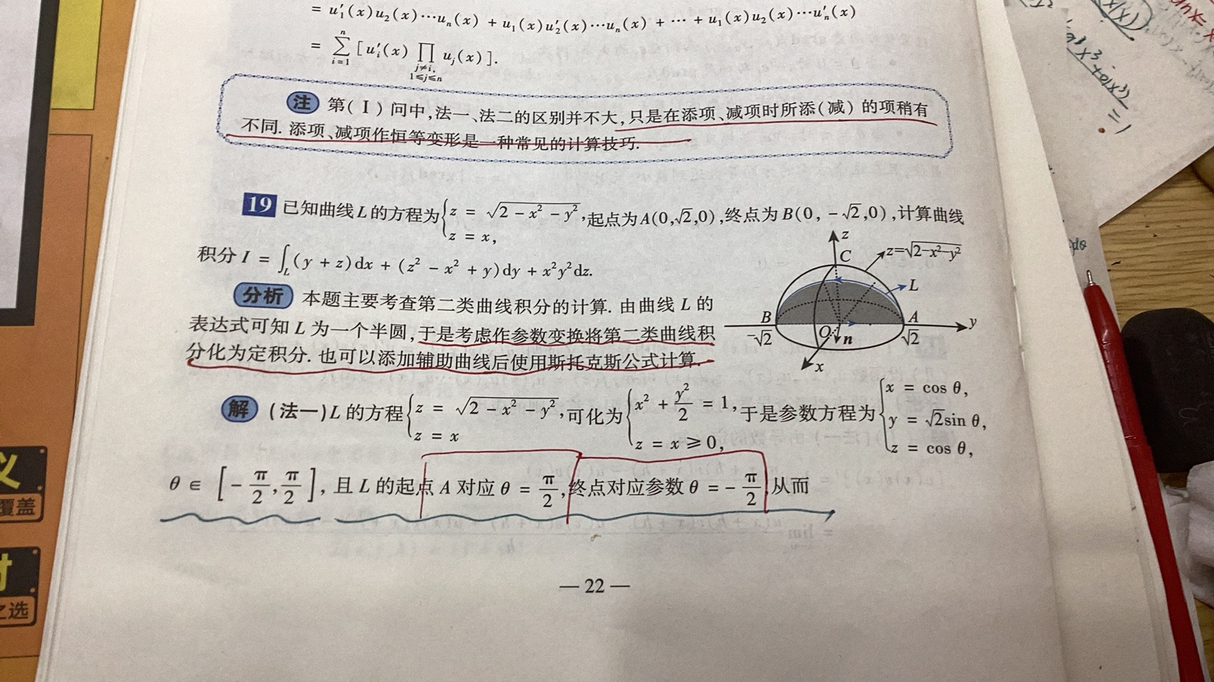 = u₁'(x)u₂(x)⋯uₙ(x) + u₁(x)u₂'(x)⋯uₙ(x) + ⋯ + u₁(x)u₂(x)⋯uₙ'(x)
= ∑_{i=1}^{n} [u_i'(x) ∏_{j≠i, 1≤j≤n} u_j(x)].
注 第(Ⅰ)问中,法一、法二的区别并不大,只是在添项、减项时所添(减)的项稍有
不同. 添项、减项作恒等变形是一种常见的计算技巧.
19 已知曲线L的方程为{z = √(2-x²-y²), z = x, 起点为A(0,√2,0),终点为B(0,-√2,0),计算曲线
积分 I = ∫_L (y+z)dx + (z²-x²+y)dy + x²y²dz.
z
C
z=√(2-x²-y²)
L
B
A
y
-√2
O
n
√2
x
分析 本题主要考查第二类曲线积分的计算. 由曲线 L 的
表达式可知 L 为一个半圆,于是考虑作参数变换将第二类曲线积
分化为定积分. 也可以添加辅助曲线后使用斯托克斯公式计算.
解 (法一)L 的方程{z = √(2-x²-y²), z = x 可化为{x² + y²/2 = 1, z = x ≥ 0, 于是参数方程为{x = cos θ, y = √2sin θ, z = cos θ,
θ ∈ [-π/2, π/2], 且 L 的起点 A 对应 θ = π/2, 终点对应参数 θ = -π/2. 从而
— 22 —
义
覆盖
之选
dθ
= 1